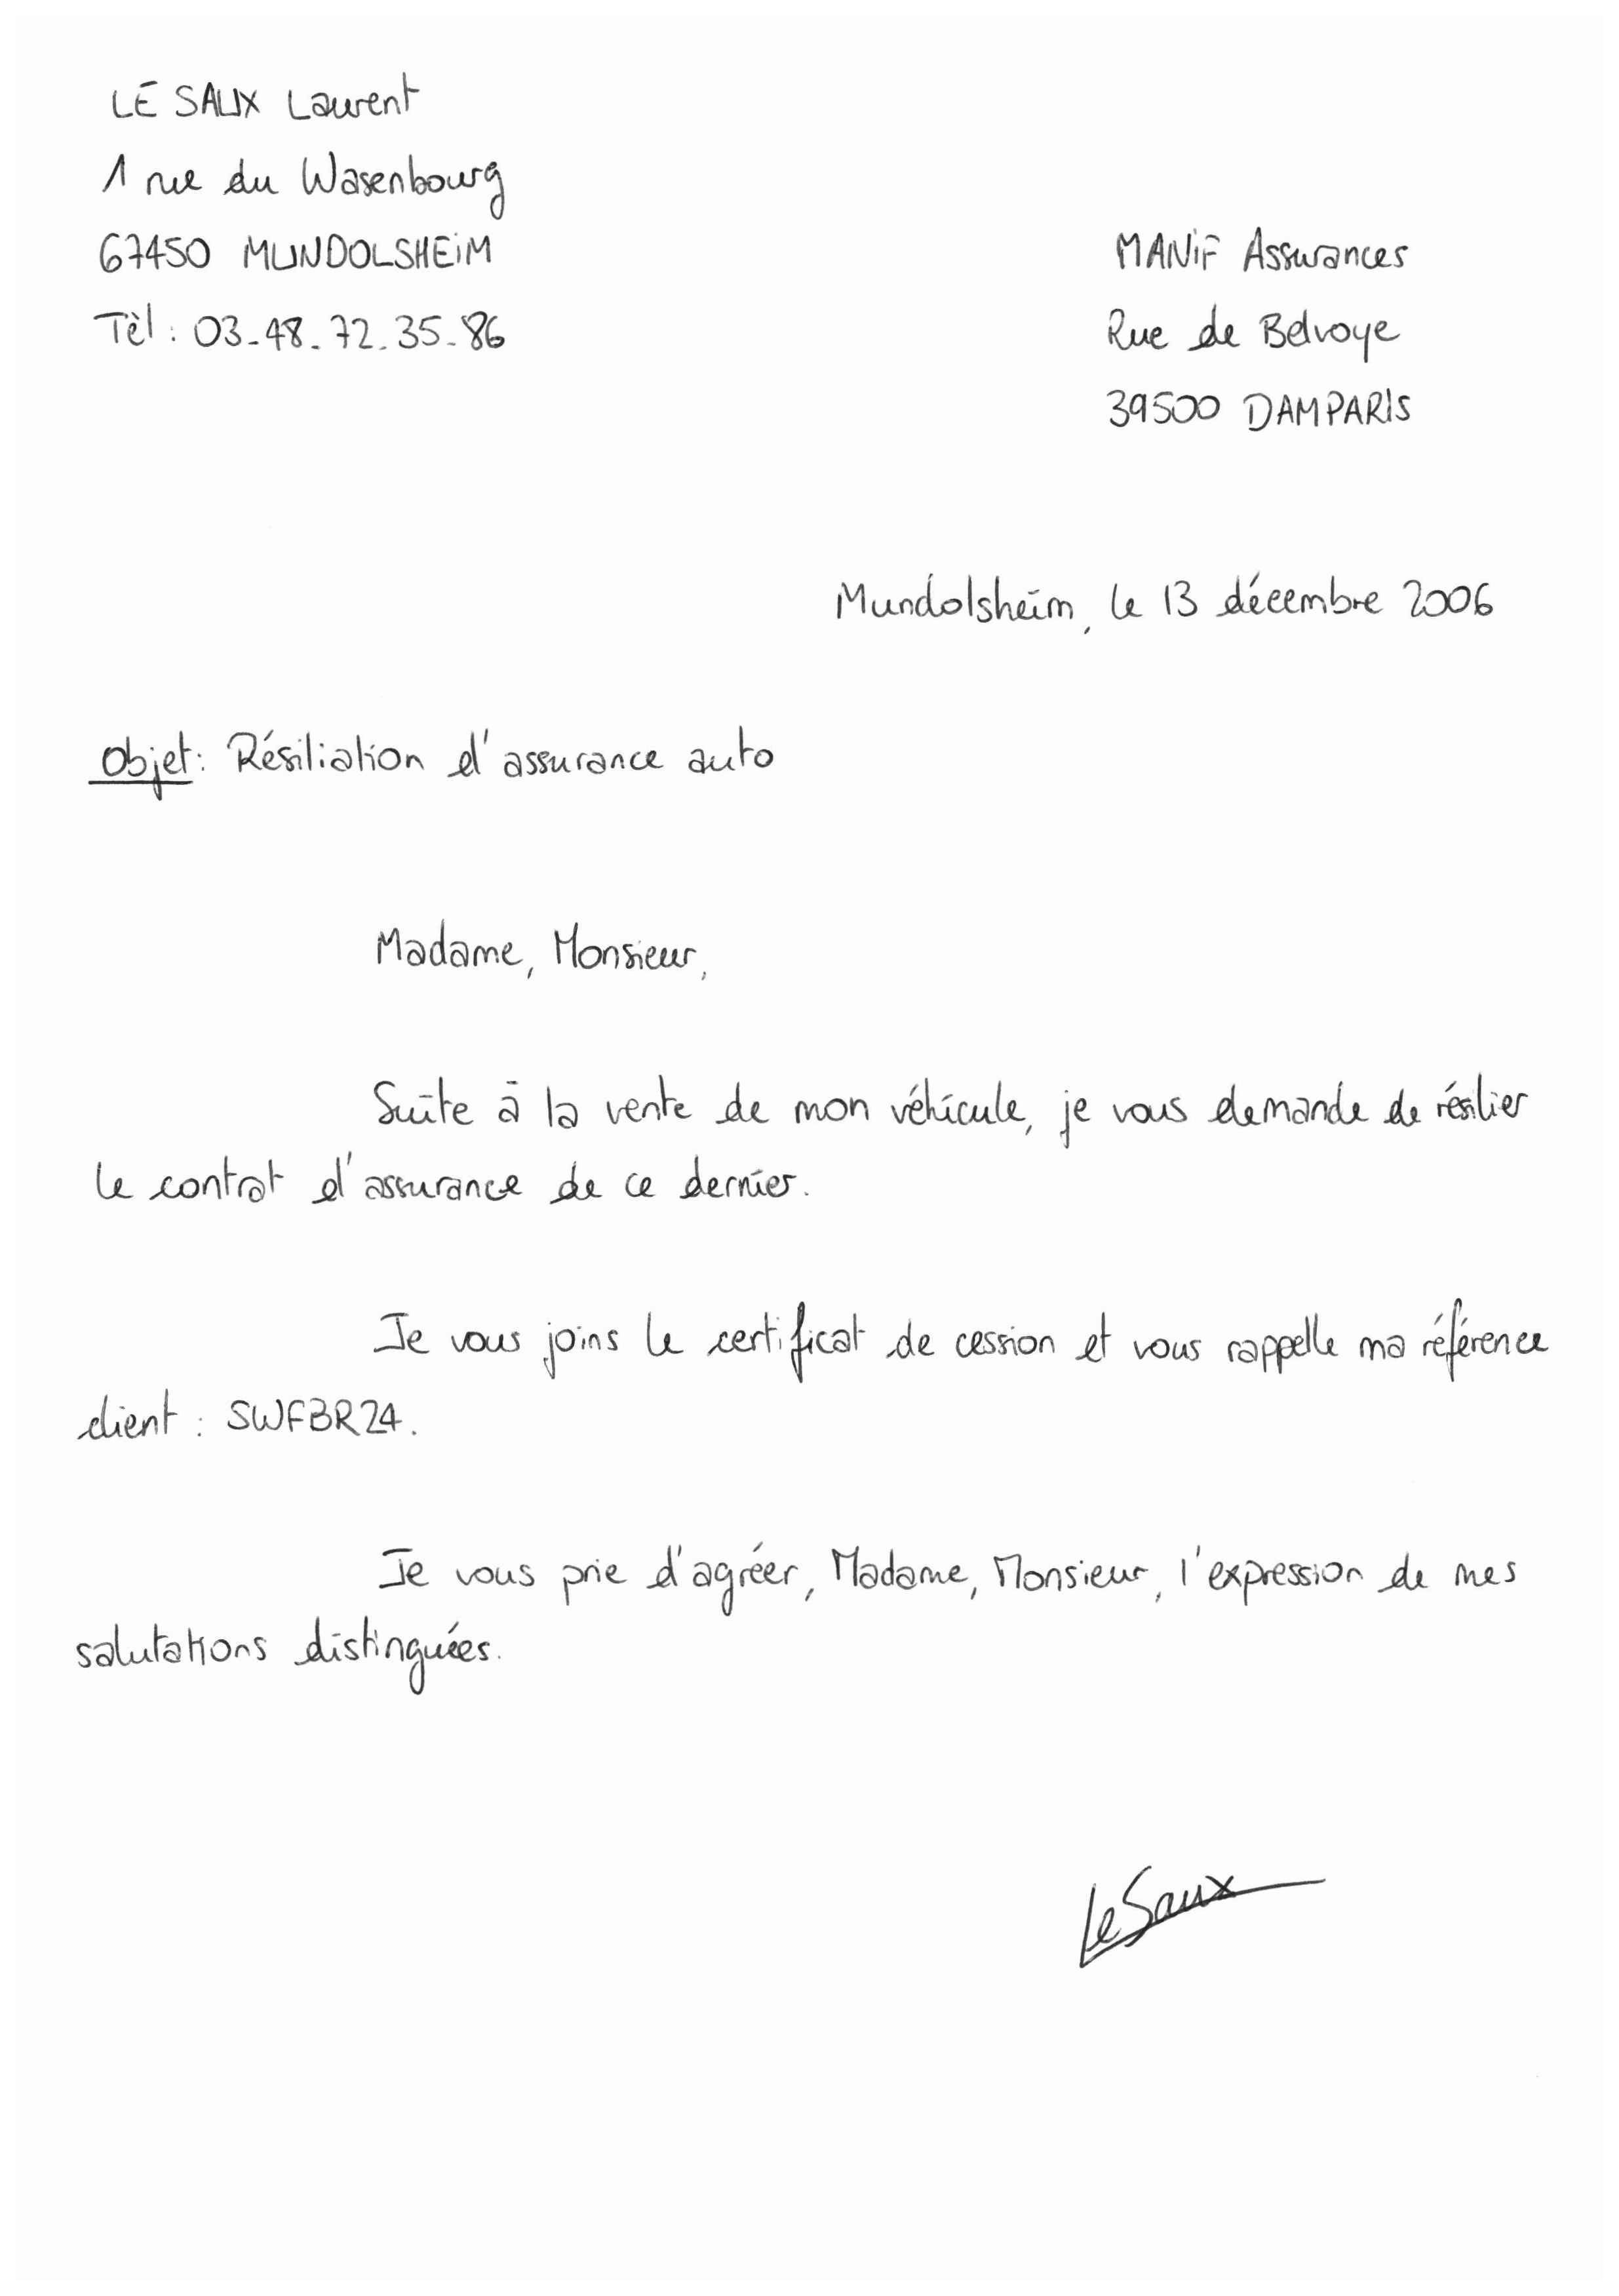 LE SAUX Laurent
1 rue du Wasenbourg
67450 MUNDOLSHEIM
Tèl : 03.48.72.35.86
MANIF Assurances
Rue de Belvoye
39500 DAMPARIS
Mundolsheim, le 13 décembre 2006
Objet : Résiliation d'assurance auto
Madame, Monsieur,
Suite à la vente de mon véhicule, je vous demande de résilier
le contrat d'assurance de ce dernier.
Je vous joins le certificat de cession et vous rappelle ma référence
client : SWFBR24.
Je vous prie d'agréer, Madame, Monsieur, l'expression de mes
salutations distinguées.
Le Saux